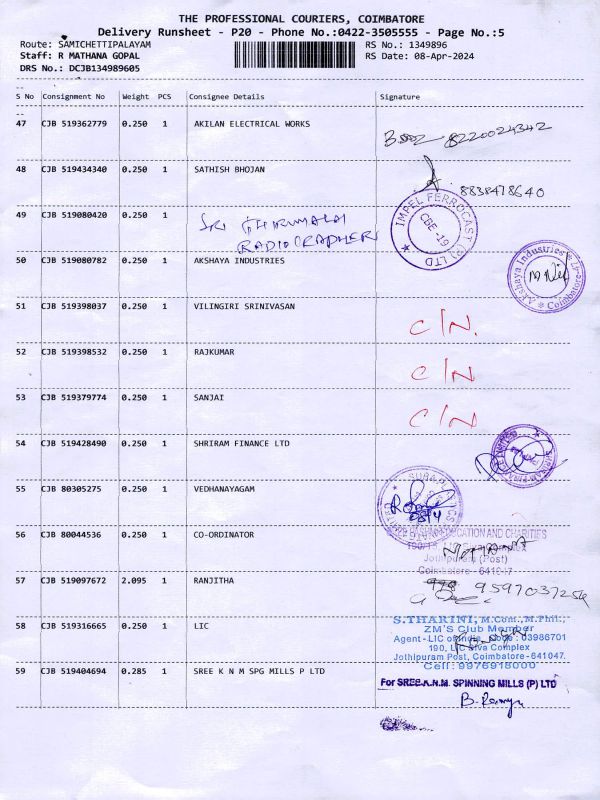 THE PROFESSIONAL COURIERS, COIMBATORE
Delivery Runsheet - P20 - Phone No.:0422-3505555 - Page No.:5
Route: SAMICHETTIPALAYAM RS No.: 1349896
Staff: R MATHANA GOPAL RS Date: 08-Apr-2024
DRS No.: DCJB134989605
S No Consignment No Weight PCS Consignee Details Signature
47 CJB 519362779 0.250 1 AKILAN ELECTRICAL WORKS
8220024342
48 CJB 519434340 0.250 1 SATHISH BHOJAN
8838478640
49 CJB 519080420 0.250 1 SRI THIRUMALAI
RADIOGRAPHERS
IMPEL FERROCAST (P) LTD
CBE -19
50 CJB 519080782 0.250 1 AKSHAYA INDUSTRIES
Akshaya Industries
Coimbatore
51 CJB 519398037 0.250 1 VILINGIRI SRINIVASAN
C/N.
52 CJB 519398532 0.250 1 RAJKUMAR
C/N
53 CJB 519379774 0.250 1 SANJAI
C/N
54 CJB 519428490 0.250 1 SHRIRAM FINANCE LTD
55 CJB 80305275 0.250 1 VEDHANAYAGAM
08/4
56 CJB 80044536 0.250 1 CO-ORDINATOR
EDUCATION AND CHARITIES
Jothipuram (Post)
Coimbatore - 641047
57 CJB 519097672 2.095 1 RANJITHA
9597037256
58 CJB 519316665 0.250 1 LIC
S.THARINI, M.Com., M.Phil.,
ZM'S Club Member
Agent - LIC of India, Code : 03986701
190, LIC Siva Complex
Jothipuram Post, Coimbatore-641047.
Cell : 9976918000
59 CJB 519404694 0.285 1 SREE K N M SPG MILLS P LTD
For SREE K.N.M. SPINNING MILLS (P) LTD
B. Ramya